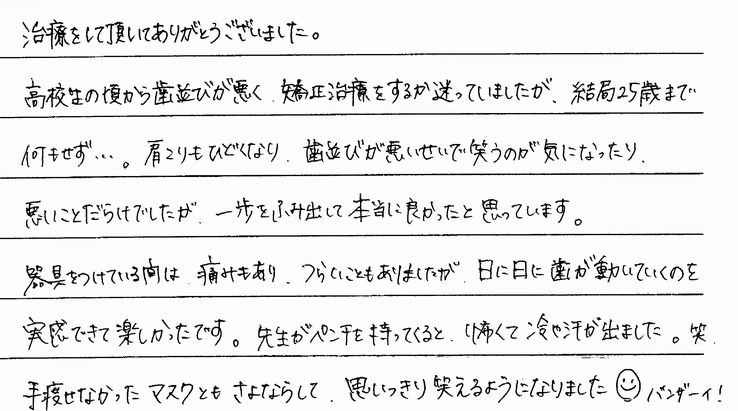 治療をして頂いてありがとうございました。
高校生の頃から歯並びが悪く、矯正治療をするか迷っていましたが、結局25歳まで
何もせず…。肩こりもひどくなり、歯並びが悪いせいで笑うのが気になったり、
悪いことだらけでしたが、一歩をふみ出して本当に良かったと思っています。
器具をつけている間は、痛みもあり、つらいこともありましたが、日に日に歯が動いていくのを
実感できて楽しかったです。先生がペンチを持ってくると、怖くて冷や汗が出ました。笑
手放せなかったマスクともさよならして、思いっきり笑えるようになりました☺バンザーイ!